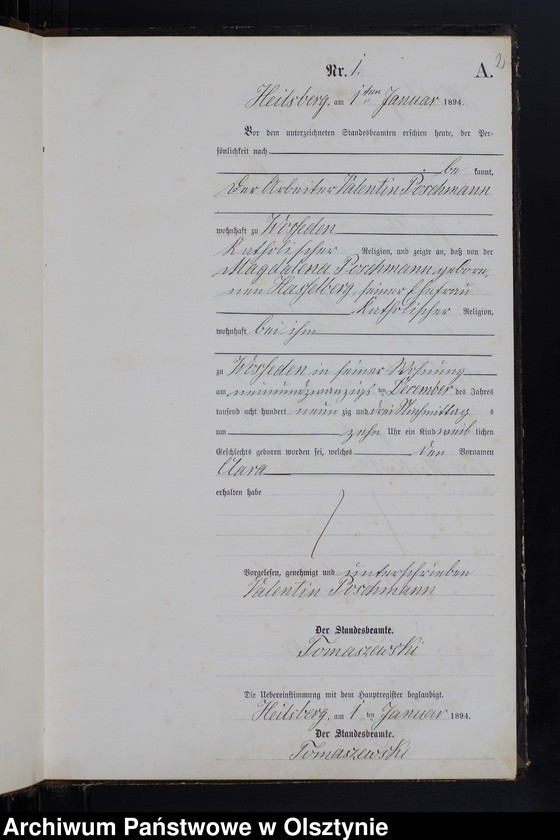 2
Nr. 1. A.
Heilsberg, am 1ten Januar 1894.
Vor dem unterzeichneten Standesbeamten erschien heute, der Per-
sönlichkeit nach
be kannt,
der Arbeiter Valentin Poschmann
wohnhaft zu Wosseden
Katholischer Religion, und zeigte an, daß von der
Magdalena Poschmann, gebore-
nen Hasselberg, seiner Ehefrau
Katholischer Religion,
wohnhaft bei ihm
zu Wosseden in seiner Wohnung
am neunundzwanzigsten December des Jahres
tausend acht hundert neunzig und drei Nachmittags
um zehn Uhr ein Kind weiblichen
Geschlechts geboren worden sei, welches den Vornamen
Clara
erhalten habe
Vorgelesen, genehmigt und unterschrieben
Valentin Poschmann
Der Standesbeamte.
Tomaszewski
Die Uebereinstimmung mit dem Hauptregister beglaubigt.
Heilsberg, am 1 ten Januar 1894.
Der Standesbeamte.
Tomaszewski
Archiwum Państwowe w Olsztynie